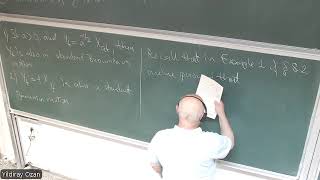 If a>0, and Y_t = a^{-1/2} X_{at}, then
Y_t is also a standard Brownian
motion
is also a standard
Brownian motion
Recall that in Example 1 of § 8.2
we have proved that
Yildiray Ozan